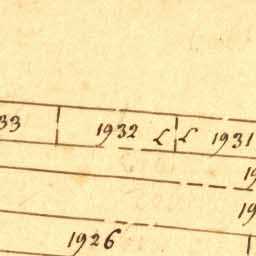 33 1932 L L 1931
19
19
1926